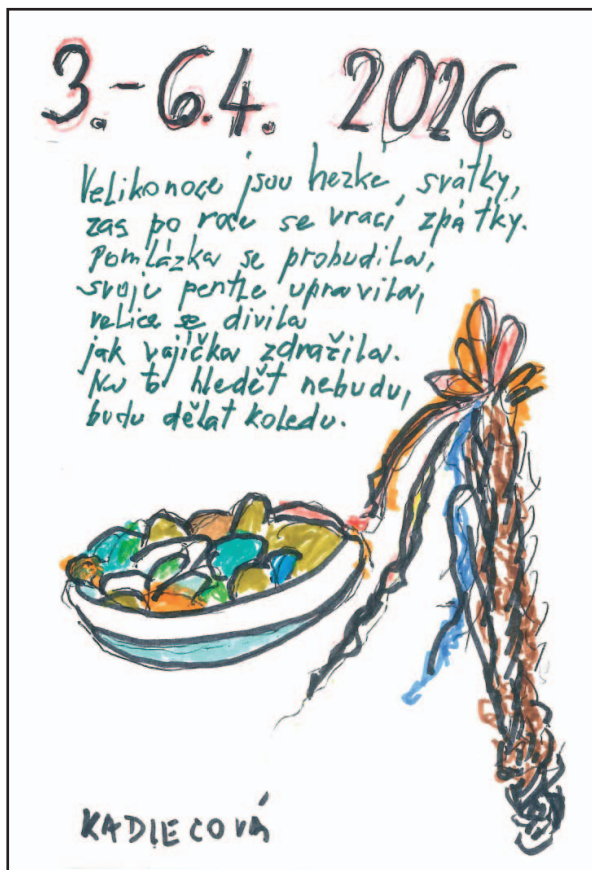 3.-6.4. 2026.
Velikonoce jsou hezké svátky,
zas po roce se vrací zpátky.
Pomlázka se probudila,
svoje pentle upravila,
velice se divila
jak vajíčka zdražila.
Na to hledět nebudu,
budu dělat koledu.
KADLECOVÁ